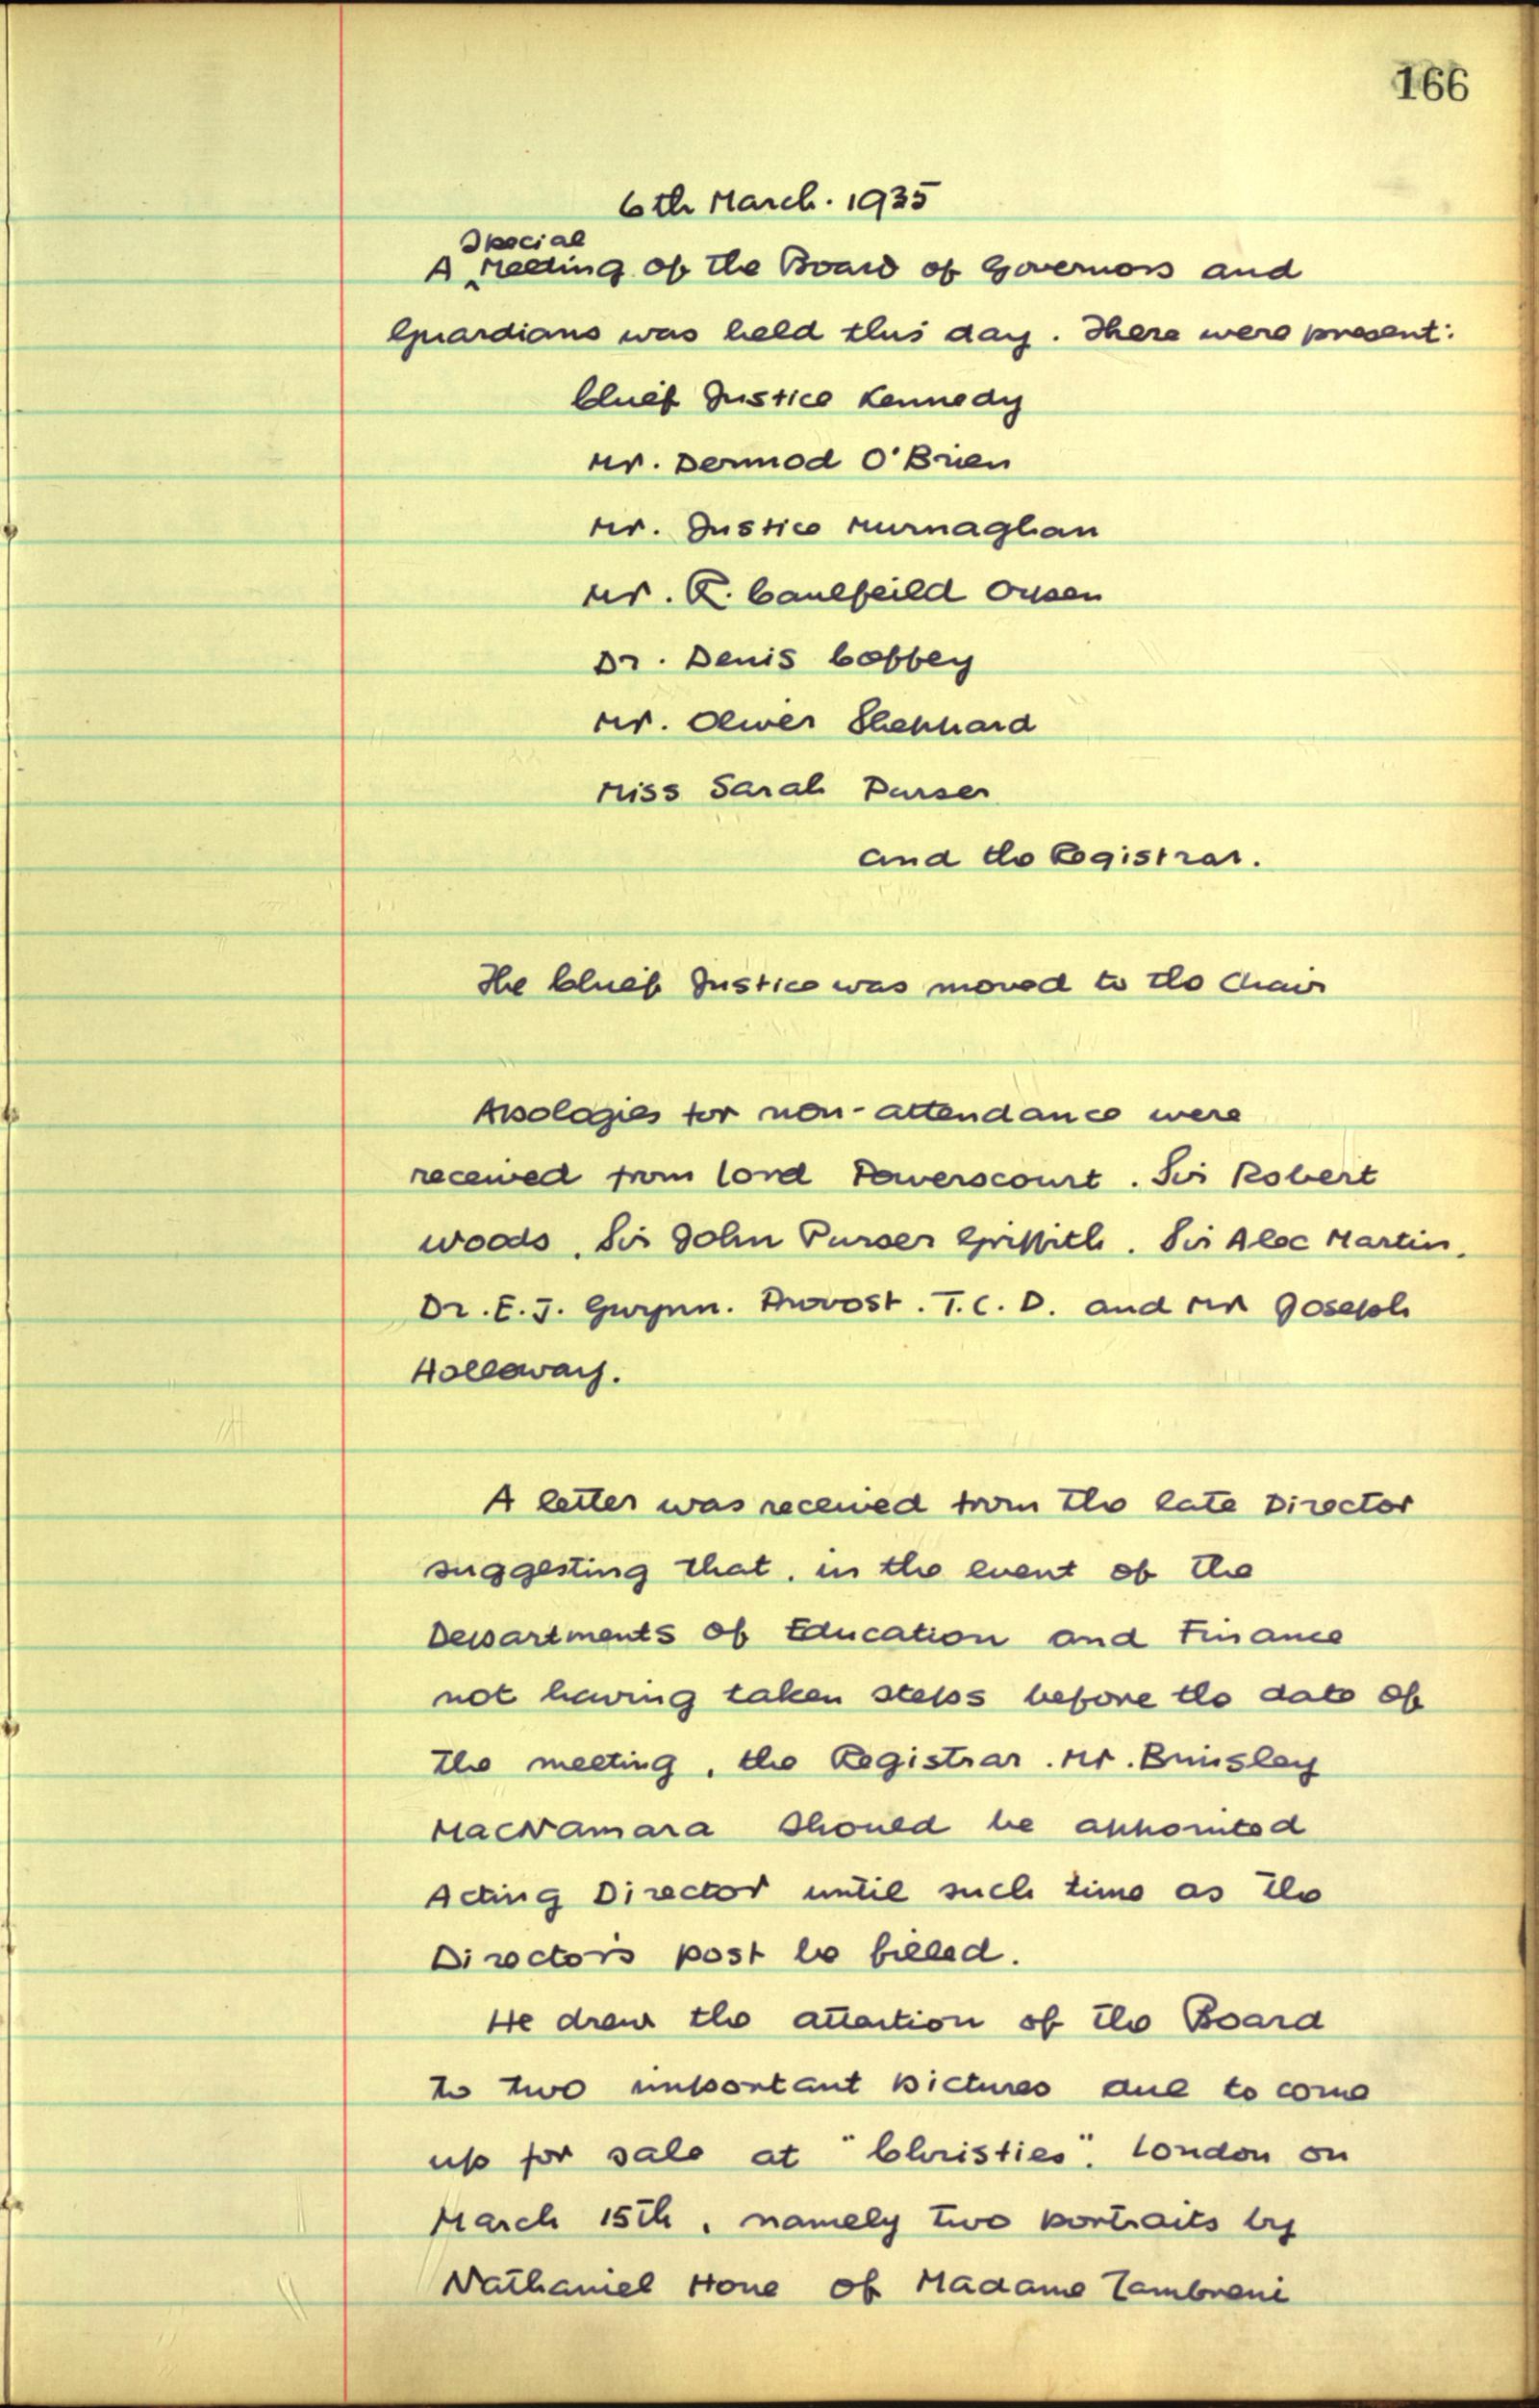 166
6th March. 1935
Special
A Meeting of the Board of Governors and
Guardians was held this day. There were present:
Chief Justice Kennedy
Mr. Dermod O'Brien
Mr. Justice Murnaghan
Mr. R. Caulfeild Orpen
Dr. Denis Coffey
Mr. Oliver Sheppard
Miss Sarah Purser
and the Registrar.
The Chief Justice was moved to the Chair
Apologies for non-attendance were
received from Lord Powerscourt. Sir Robert
Woods, Sir John Purser Griffith. Sir Alec Martin.
Dr. E. J. Gwynn. Provost. T.C.D. and Mr Joseph
Holloway.
A letter was received from the late Director
suggesting that, in the event of the
Departments of Education and Finance
not having taken steps before the date of
the meeting, the Registrar. Mr. Brinsley
MacNamara should be appointed
Acting Director until such time as the
Director's post be filled.
He drew the attention of the Board
to two important pictures due to come
up for sale at "Christies". London on
March 15th, namely two portraits by
Nathaniel Hone of Madame Zambreni